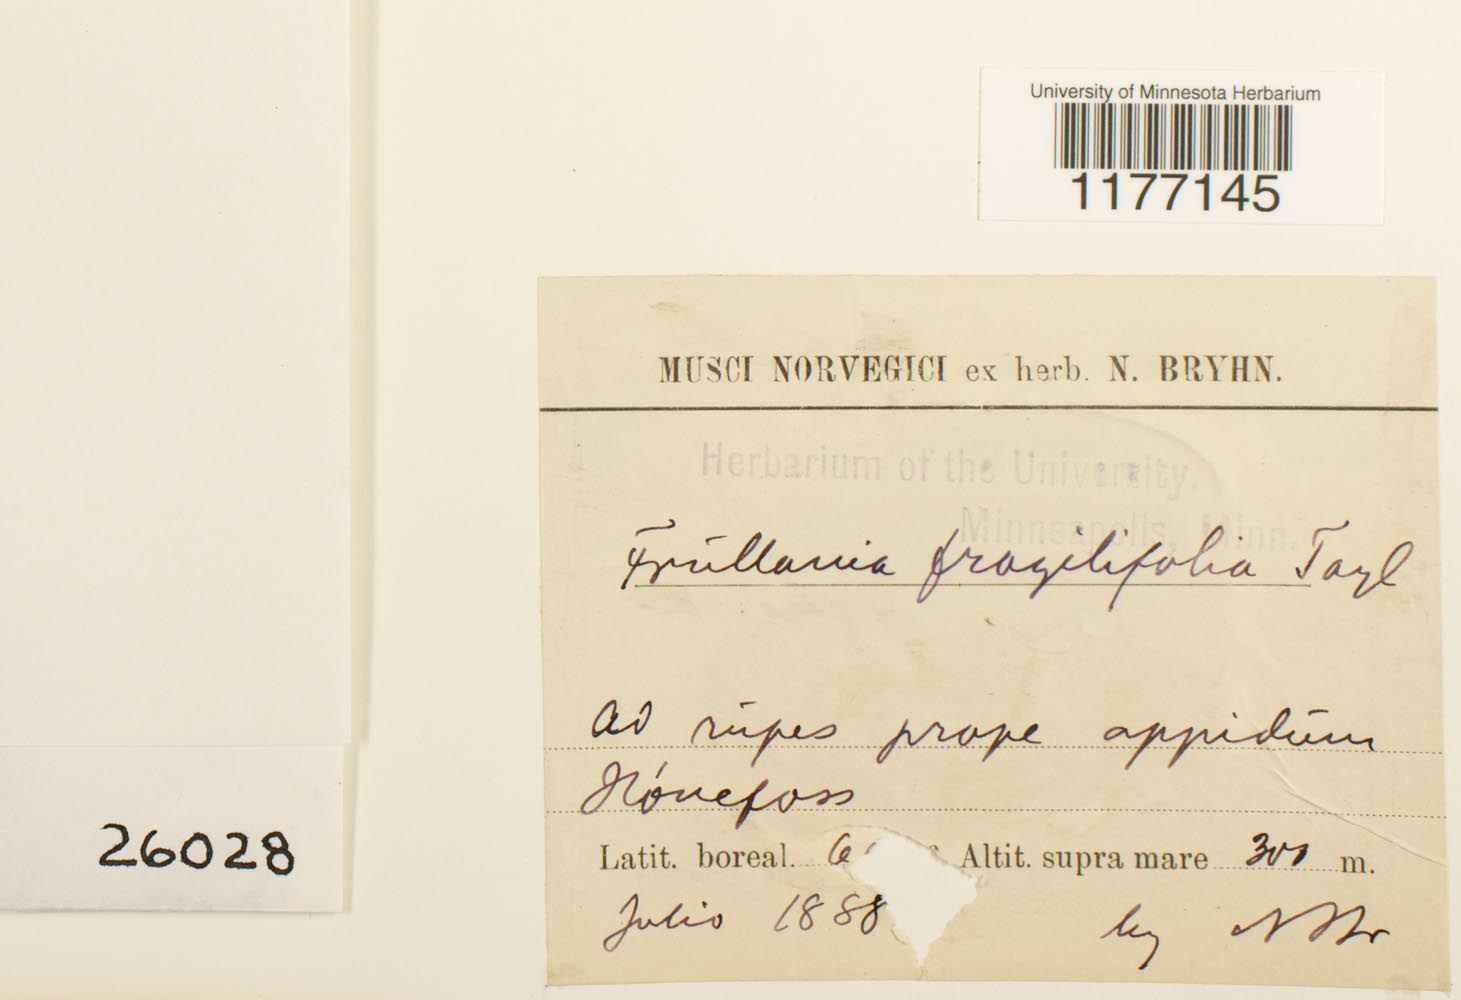 University of Minnesota Herbarium
1177145
MUSCI NORVEGICI ex herb. N. BRYHN.
Herbarium of the University.
Minneapolis, Minn.
Frullania fragilifolia Tayl
ad rupes prope oppidum
Hónefoss
Latit. boreal. Altit. supra mare 300 m.
Julio 1888
26028